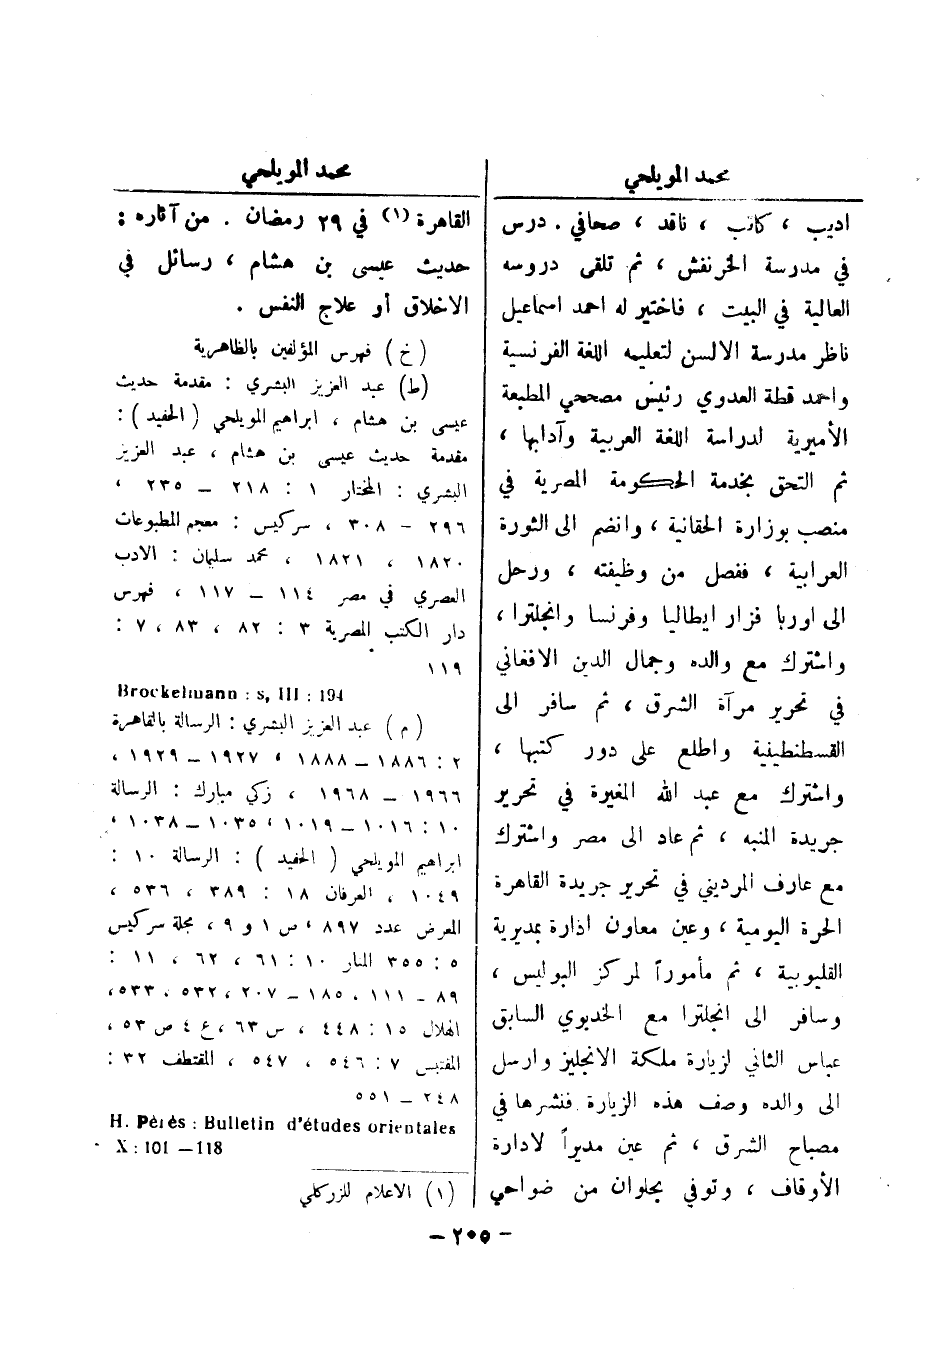 محمد المويلحي
اديب ، كاتب ، ناقد ، صحافي . درس
في مدرسة الخرنفش ، ثم تلقى دروسه
العالية في البيت ، فاختير له احمد اسماعيل
ناظر مدرسة الالسن لتعليمه اللغة الفرنسية
واحمد قطة العدوي رئيس مصححي المطبعة
الأميرية لدراسة اللغة العربية وآدابها ،
ثم التحق بخدمة الحكومة المصرية في
منصب بوزارة الحقانية ، وانضم الى الثورة
العرابية ، ففصل من وظيفته ، ورحل
الى اوربا فزار ايطاليا وفرنسا وانجلترا ،
واشترك مع والده وجمال الدين الافغاني
في تحرير مرآة الشرق ، ثم سافر الى
القسطنطينية واطلع على دور كتبها ،
واشترك مع عبد الله المغيرة في تحرير
جريدة المنبه ، ثم عاد الى مصر واشترك
مع عارف المرديني في تحرير جريدة القاهرة
الحرة اليومية ، وعين معاون ادارة بمديرية
القليوبية ، ثم مأموراً لمركز البوليس ،
وسافر الى انجلترا مع الخديوي السابق
عباس الثاني لزيارة ملكة الانجليز وارسل
الى والده وصف هذه الزيارة فنشرها في
مصباح الشرق ، ثم عين مديراً لادارة
الأوقاف ، وتوفي بحلوان من ضواحي
محمد المويلحي
القاهرة (١) في ٢٩ رمضان . من آثاره :
حديث عيسى بن هشام ، رسائل في
الاخلاق أو علاج النفس .
(خ) فهرس المؤلفين بالظاهرية
(ط) عبد العزيز البشري : مقدمة حديث
عيسى بن هشام ، ابراهيم المويلحي (الحفيد) :
مقدمة حديث عيسى بن هشام ، عبد العزيز
البشري : المختار ١ : ٢١٨ – ٢٣٥ ،
٢٩٦ – ٣٠٨ ، سركيس : معجم المطبوعات
١٨٢٠ ، ١٨٢١ ، محمد سليمان : الادب
العصري في مصر ١١٤ – ١١٧ ، فهرس
دار الكتب المصرية ٣ : ٨٢ ، ٨٣ ، ٧ :
١١٩
Brockelmann : s, III : 194
(م) عبد العزيز البشري : الرسالة بالقاهرة
٢ : ١٨٨٦ – ١٨٨٨ ، ١٩٢٧ – ١٩٢٩ ،
١٩٦٦ – ١٩٦٨ ، زكي مبارك : الرسالة
١٠ : ١٠١٦ – ١٠١٩ ، ١٠٣٥ – ١٠٣٨ ،
ابراهيم المويلحي (الحفيد) : الرسالة ١٠ :
١٠٤٩ ، العرفان ١٨ : ٣٨٩ ، ٥٣٦ ،
المعرض عدد ٨٩٧ ، ص ١ و ٩ ، مجلة سركيس
٥ : ٣٥٥ المنار ١٠ : ٦١ ، ٦٢ ، ١١ :
٨٩ – ١١١ ، ١٨٥ – ٢٠٧ ، ٥٣٢ ، ٥٣٣ ،
الهلال ١٥ : ٤٤٨ ، س ٦٣ ، ع ٤ ص ٥٣ ،
المقتبس ٧ : ٥٤٦ ، ٥٤٧ ، المقتطف ٣٢ :
٢٤٨ – ٥٥١
H. Pérès : Bulletin d'études orientales
X : 101 – 118
(١) الاعلام للزركلي
– ٢٠٥ –